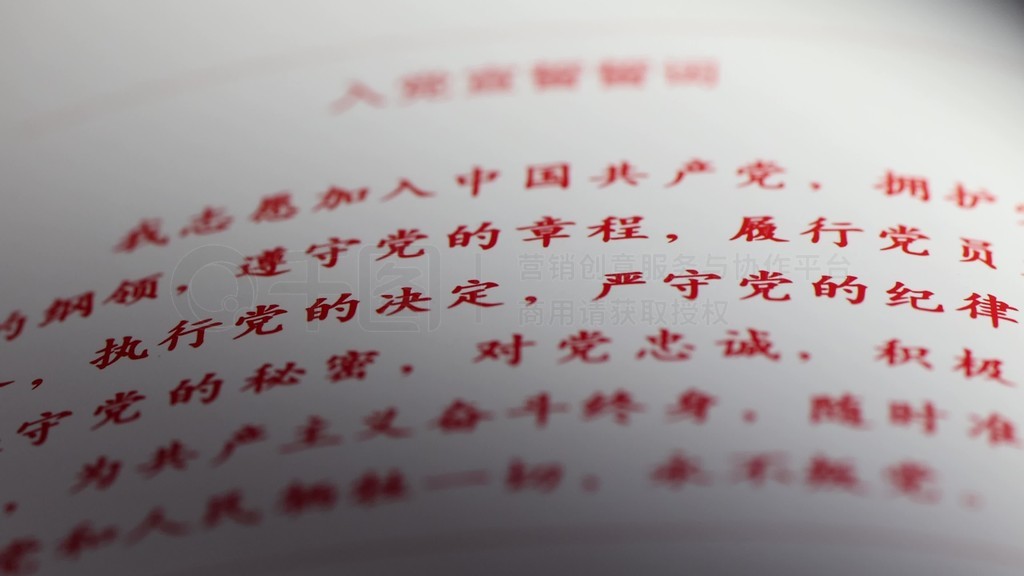 入党宣誓誓词
我志愿加入中国共产党，拥护
的纲领，遵守党的章程，履行党员
，执行党的决定，严守党的纪律
守党的秘密，对党忠诚，积极
，为共产主义奋斗终身，随时准
党和人民牺牲一切，永不叛党。
千图
营销创意服务与协作平台
商用请获取授权